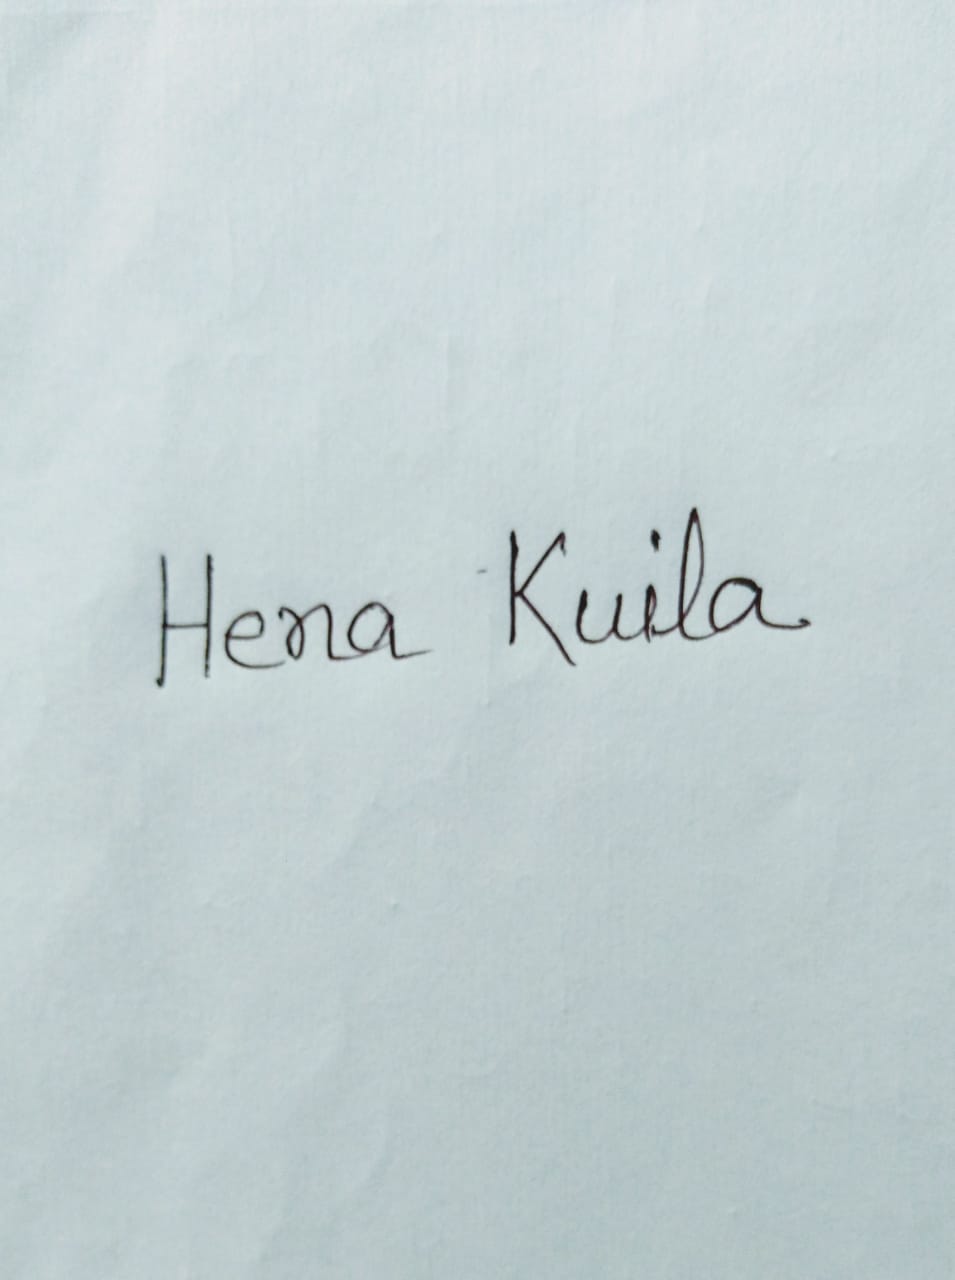 Hena Kuila